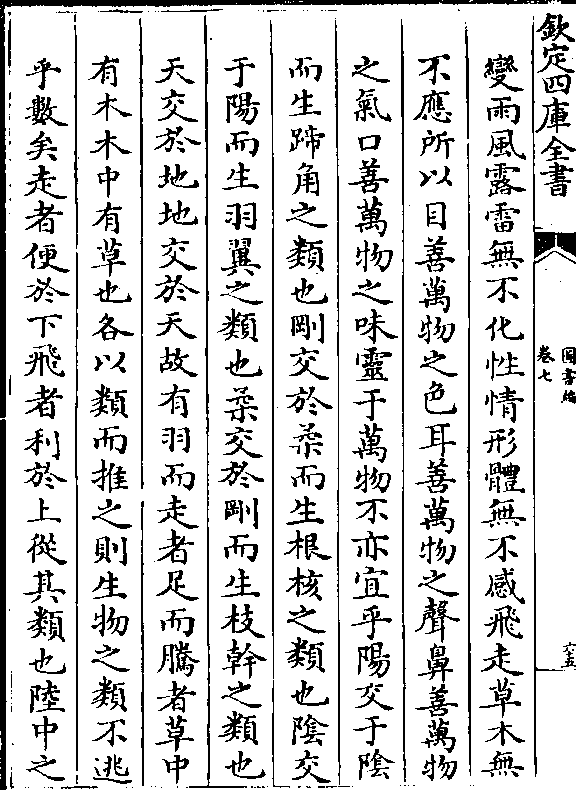 欽定四庫全書
圖書編
卷七
六五
變雨風露雷無不化性情形體無不感飛走草木無
不應所以目善萬物之色耳善萬物之聲鼻善萬物
之氣口善萬物之味靈于萬物不亦宜乎陽交于陰
而生蹄角之類也剛交於柔而生根核之類也陰交
于陽而生羽翼之類也柔交於剛而生枝幹之類也
天交於地地交於天故有羽而走者足而騰者草中
有木木中有草也各以類而推之則生物之類不逃
乎數矣走者便於下飛者利於上從其類也陸中之